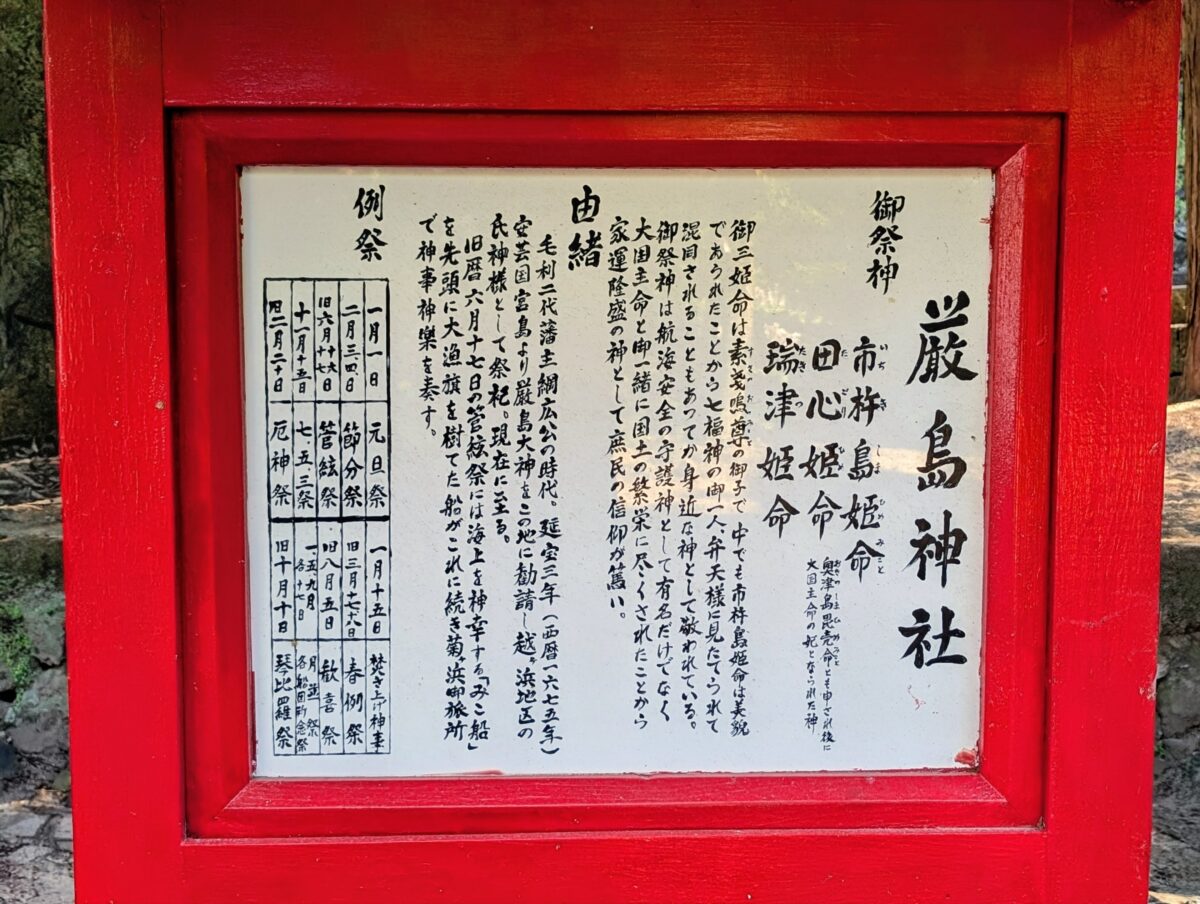 厳島神社
御祭神
市杵島姫命
いちきしまひめみこと
田心姫命
たごりひめ
奥津島毘売命とも申され後に
おきつしまひめみこと
大国主命の妃となられた神
瑞津姫命
たきつ
御三姫命は素戔嗚尊の御子で中でも市杵島姫命は美貌
すさのお
であられたことから七福神の御一人、弁天様に見たてられて
混同されることもあってか身近な神として敬われている。
御祭神は航海安全の守護神として有名だけでなく
大国主命と御一緒に国土の繁栄に尽くされたことから
家運隆盛の神として庶民の信仰が篤い。
由緒
毛利二代藩主綱広公の時代。延宝三年(西暦一六七五年)
安芸国宮島より厳島大神をこの地に勧請し越ヶ浜地区の
氏神様として祭祀。現在に至る。
旧暦六月十七日の管絃祭には海上を神幸する「みこ船」
を先頭に大漁旗を樹てた船がこれに続き菊ヶ浜御旅所
で神事神楽を奏す。
例祭
一月一日 元旦祭 一月十五日 焚き上げ神事
二月三、四日 節分祭 旧三月十七、十八日 春例祭
旧六月十六、十七日 管絃祭 旧八月五日 歓喜祭
十一月十五日 七五三祭 一、五、九月各十七日 月並祭 各船団祈念祭
旧二月二十日 厄神祭 旧十月十日 琴比四維祭